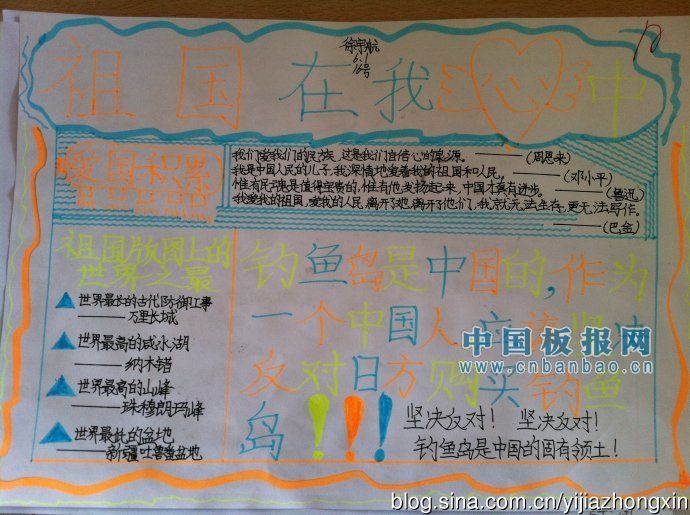 徐宇航
6.1
16号
祖国在我心中
爱国积累
我们爱我们的民族,这是我们自信心的泉源。——(周恩来)
我是中国人民的儿子,我深情地爱着我的祖国和人民。——(邓小平)
惟有民魂是值得宝贵的,惟有他发扬起来,中国才真有进步。——(鲁迅)
我爱我的祖国,爱我的人民,离开了她,离开了他们,我就无法生存,更无法写作。
——(巴金)
祖国版图上的
世界之最
世界最长的古代防御工事
——万里长城
世界最高的咸水湖
——纳木错
世界最高的山峰
——珠穆朗玛峰
世界最低的盆地
——新疆吐鲁番盆地
钓鱼岛是中国的,作为
一个中国人应该坚决
反对日方购买钓鱼
岛!!!
坚决反对! 坚决反对!
钓鱼岛是中国的固有领土!
中国板报网
www.cnbanbao.cn
blog.sina.com.cn/yijiazhongxin